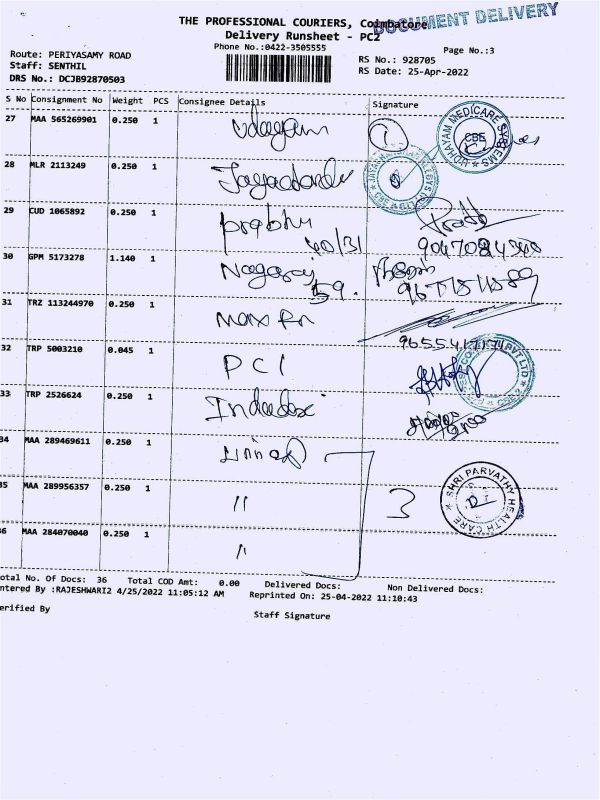 DOCUMENT DELIVERY
THE PROFESSIONAL COURIERS, Coimbatore
Delivery Runsheet - PC2
Phone No.:0422-3505555
Page No.:3
Route: PERIYASAMY ROAD
RS No.: 928705
Staff: SENTHIL
RS Date: 25-Apr-2022
DRS No.: DCJB92870503
S No Consignment No Weight PCS Consignee Details Signature
27 MAA 565269901 0.250 1 Udayam
UDHAYAM MEDICARE SYSTEMS
CBE
28 MLR 2113249 0.250 1
29 CUD 1065892 0.250 1 prabhu
30 GPM 5173278 1.140 1 Nagaraj
59.
31 TRZ 113244970 0.250 1
32 TRP 5003210 0.045 1 PCI
PVT LTD
33 TRP 2526624 0.250 1
34 MAA 289469611 0.250 1
35 MAA 289956357 0.250 1 〃 3
SHRI PARVATHY HEALTH CARE
36 MAA 284070040 0.250 1 〃
Total No. Of Docs: 36 Total COD Amt: 0.00 Delivered Docs: Non Delivered Docs:
Entered By :RAJESHWARI2 4/25/2022 11:05:12 AM Reprinted On: 25-04-2022 11:10:43
Verified By
Staff Signature